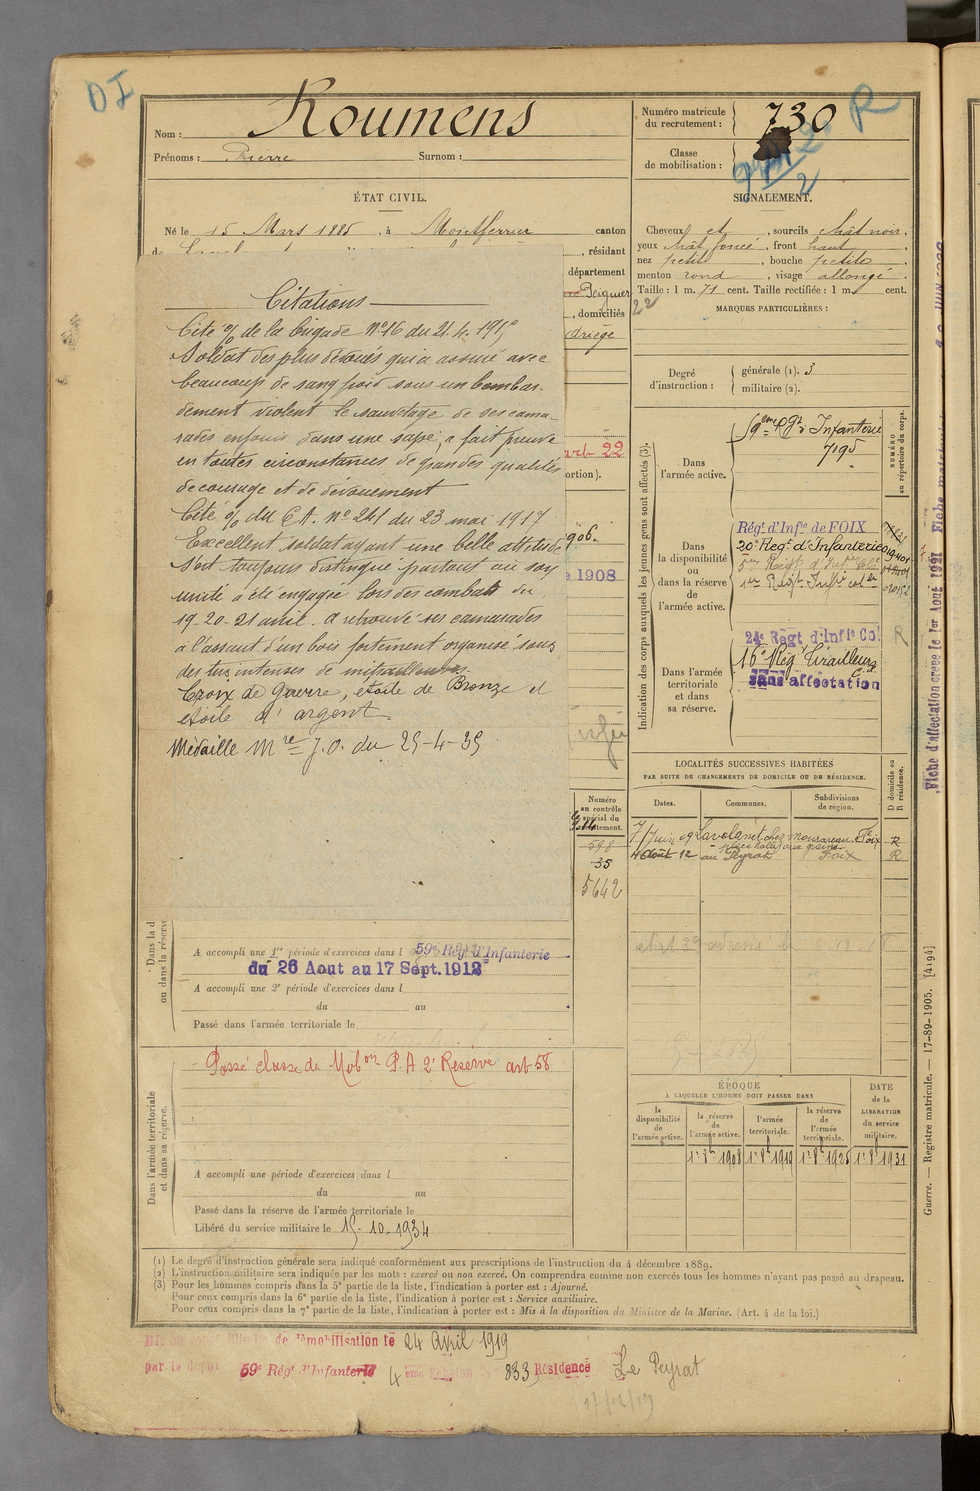 DI
Nom : Roumens
Prénoms : Pierre Surnom :
Numéro matricule du recrutement : 730
R
Classe de mobilisation :
2
ÉTAT CIVIL.
Né le 15 Mars 1885, à Montferrier canton
, résidant
département
Peignier
, domiciliés
SIGNALEMENT.
Cheveux et , sourcils chât noir.
yeux chât foncé , front haut ,
nez petit , bouche petite ,
menton rond , visage allongé .
Taille : 1 m. 71 cent. Taille rectifiée : 1 m. cent.
22
MARQUES PARTICULIÈRES :
Degré d'instruction : générale (1). 3
militaire (2).
Citations
Cité % de la Brigade N° 16 du 21.4.191
Soldat des plus dévoués qui a assuré avec
beaucoup de sang froid sous un bombar-
dement violent le sauvetage de ses cama-
rades enfouis dans une sape, a fait preuve
en toutes circonstances de grandes qualités
de courage et de dévouement
Cité % du C.A. n° 241 du 23 mai 1917
Excellent soldat ayant une belle attitude
S'est toujours distingué partout où son
unité a été engagée lors des combats du
19.20-21 avril. a retrouvé ses camarades
à l'assaut d'un bois fortement organisé sous
des tirs intenses de mitrailleuses
Croix de Guerre, étoile de Bronze et
étoile d'argent
Médaille Mre J.O. du 25-4-35
art 22
ortion).
906.
1908
Numéro au contrôle spécial du recrutement.
598
35
5642
Indication des corps auxquels les jeunes gens sont affectés (3).
NUMÉRO au répertoire du corps.
Dans l'armée active.
9eme Rgt d'Infanterie
7195
Dans la disponibilité ou dans la réserve de l'armée active.
Régt d'Infie de FOIX
20e Regt d'Infanterie
019401
1er Régt Infie colle
020152
Dans l'armée territoriale et dans sa réserve.
24e Régt d'Infie Col R
16e Régt Tirailleurs
sans affectation
LOCALITÉS SUCCESSIVES HABITÉES
PAR SUITE DE CHANGEMENTS DE DOMICILE OU DE RÉSIDENCE.
Dates. Communes. Subdivisions de région. D domicile ou R résidence.
7 Juin 09 Lavelanet chez Mourareau Foix R
4 Août 12 au Peyrat Foix R
A accompli une 1re période d'exercices dans l 59e Régt d'Infanterie
du 26 Aout au 17 Sept. 1912
A accompli une 2e période d'exercices dans l
du au
Passé dans l'armée territoriale le
Dans l'armée territoriale et dans sa réserve.
Passé classe de Mobon P.A 2e Réserve art 58
A accompli une période d'exercices dans l
du au
Passé dans la réserve de l'armée territoriale le
Libéré du service militaire le 15.10.1934
ÉPOQUE
À LAQUELLE L'HOMME DOIT PASSER DANS
la disponibilité de l'armée active.
la réserve de l'armée active.
l'armée territoriale.
la réserve de l'armée territoriale.
DATE de la LIBÉRATION du service militaire.
1er 8b 1908 1er 8b 1919 1er 8b 1925 1er 8b 1931
(1) Le degré d'instruction générale sera indiqué conformément aux prescriptions de l'instruction du 4 décembre 1889.
(2) L'instruction militaire sera indiquée par les mots : exercé ou non exercé. On comprendra comme non exercés tous les hommes n'ayant pas passé au drapeau.
(3) Pour les hommes compris dans la 5e partie de la liste, l'indication à porter est : Ajourné.
Pour ceux compris dans la 6e partie de la liste, l'indication à porter est : Service auxiliaire.
Pour ceux compris dans la 7e partie de la liste, l'indication à porter est : Mis à la disposition du Ministre de la Marine. (Art. 4 de la loi.)
Mis en congé illimité de démobilisation le 24 Avril 1919
par le dépôt 59e Régt d'Infanterie 4 ème Echelon 833 Résidence Le Peyrat
17/12/19
Guerre. — Registre matricule. — 17-89-1905. [4194]
Fiche d'affectation créée le 1er Aout 1921